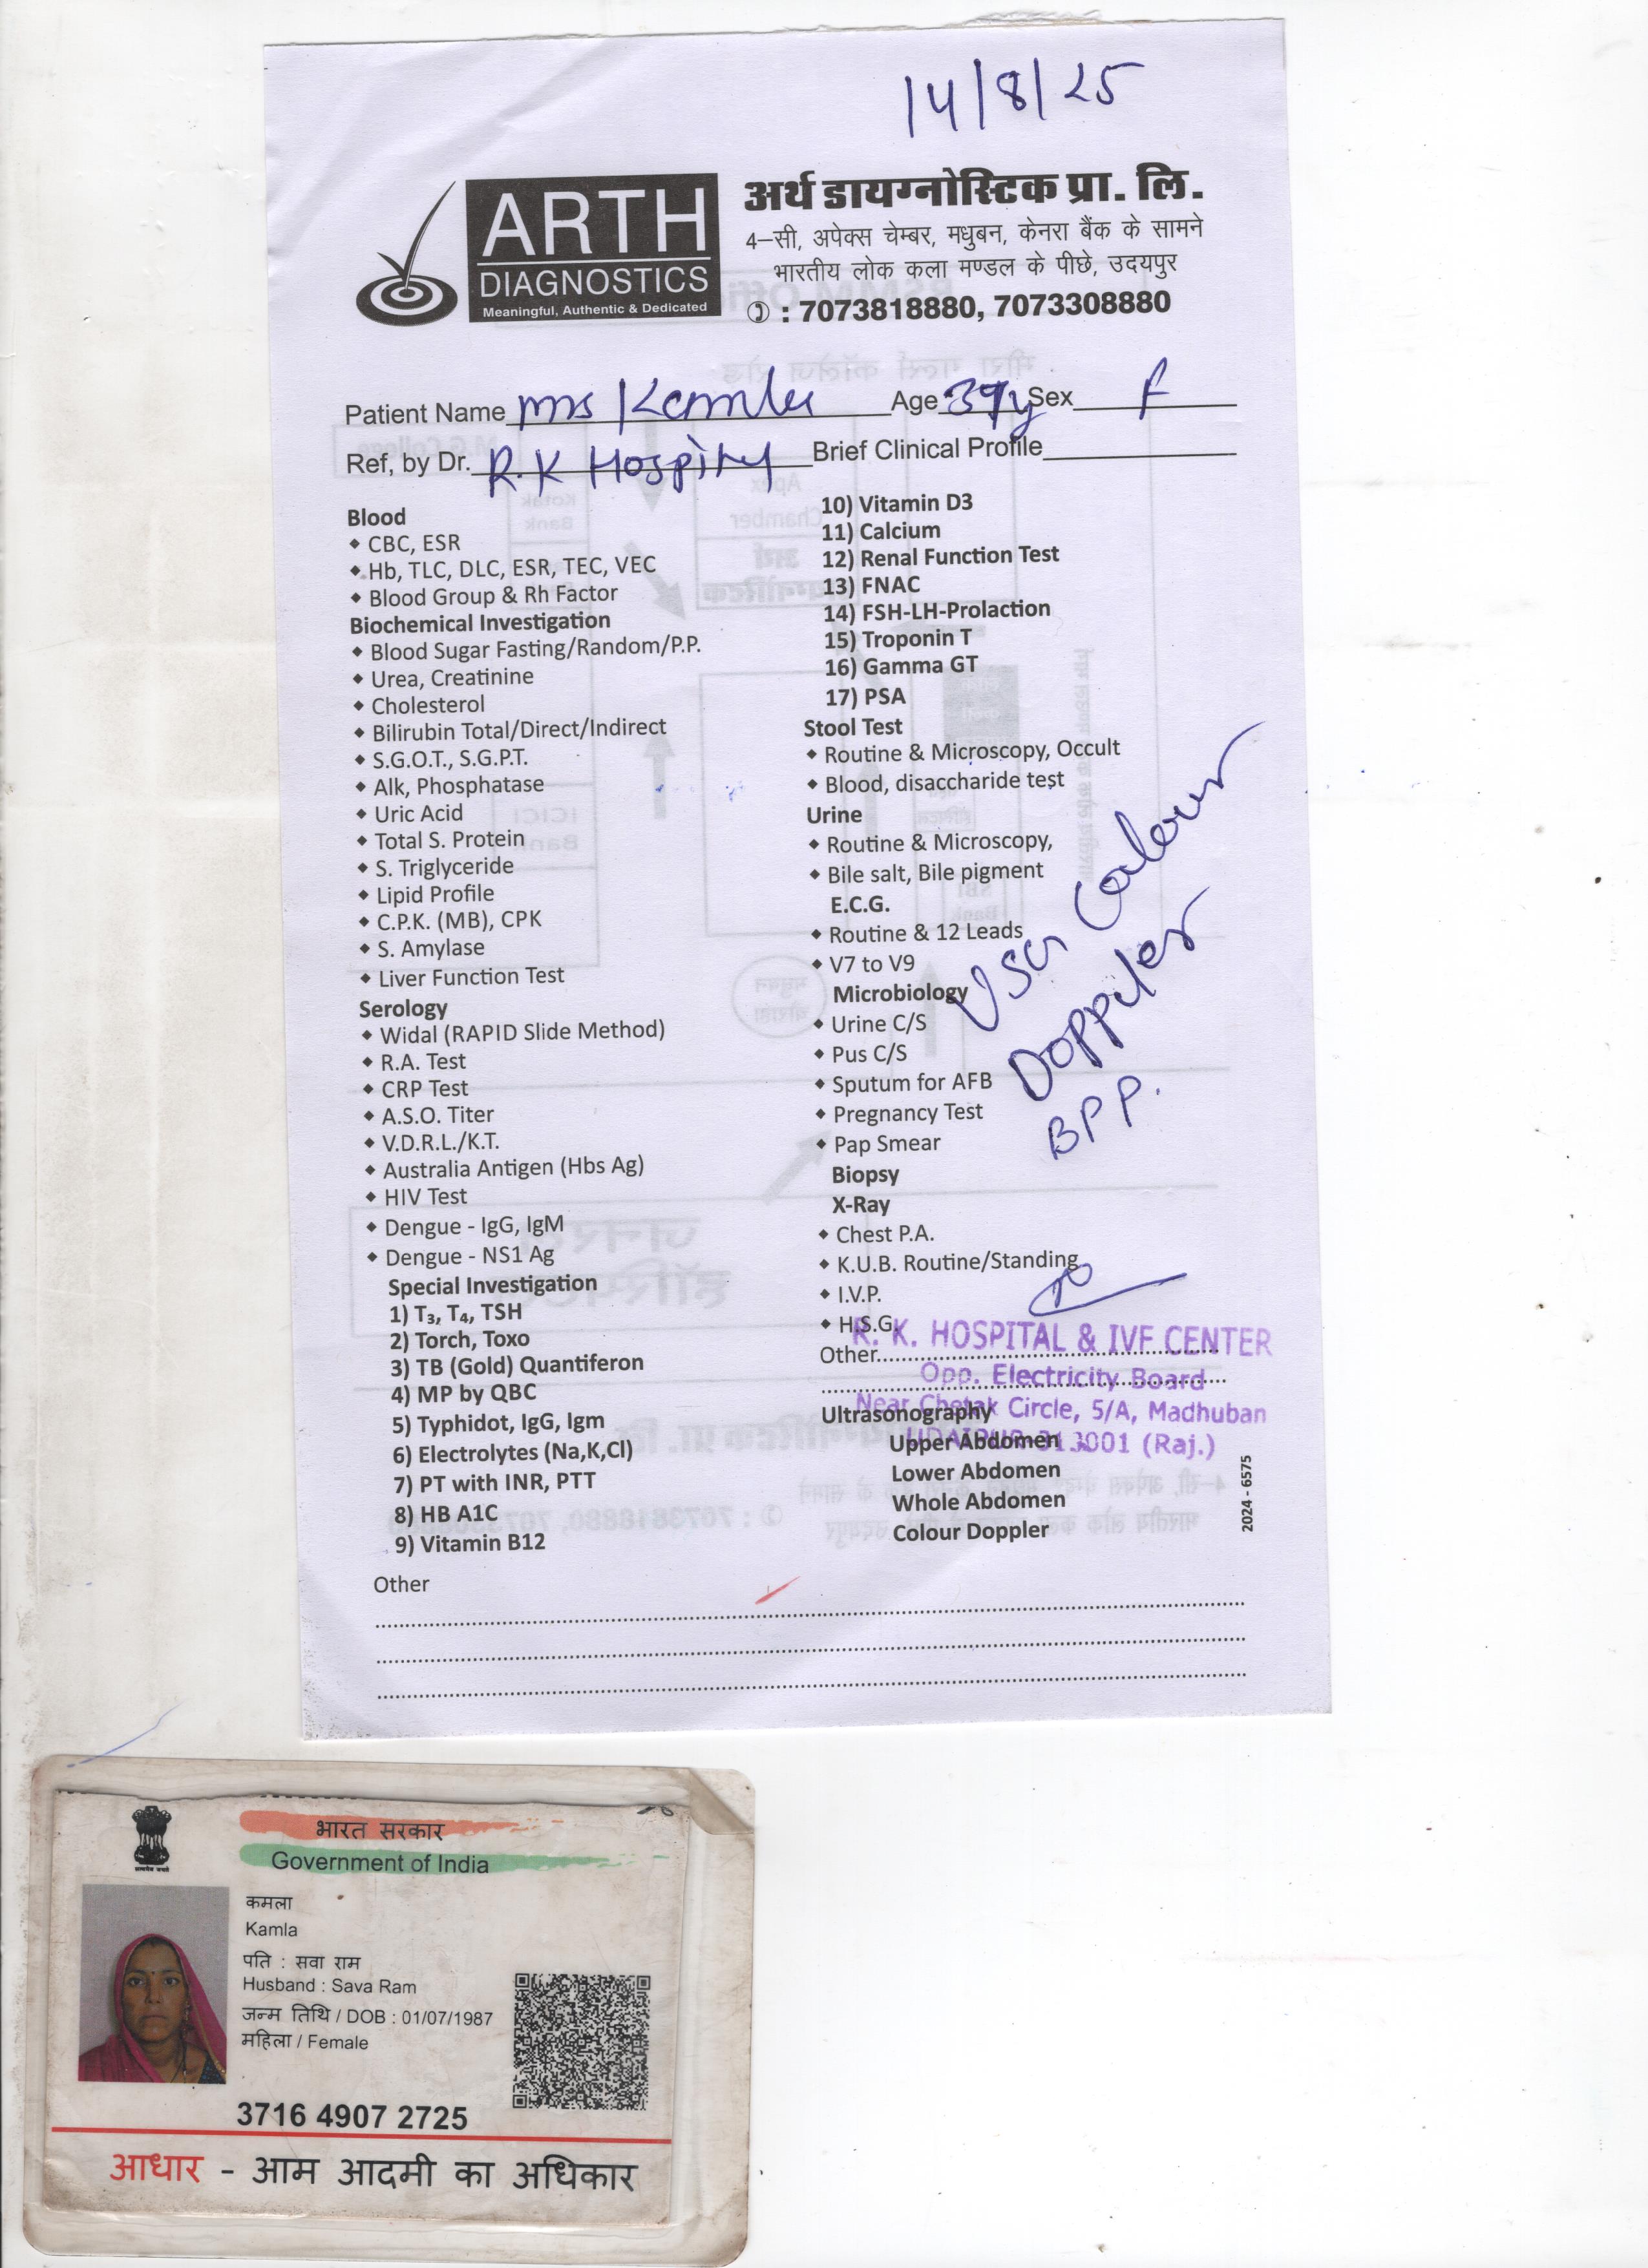 14/8/25
ARTH
DIAGNOSTICS
Meaningful, Authentic & Dedicated
अर्थ डायग्नोस्टिक प्रा. लि.
4–सी, अपेक्स चेम्बर, मधुबन, केनरा बैंक के सामने
भारतीय लोक कला मण्डल के पीछे, उदयपुर
: 7073818880, 7073308880
Patient Name Mrs Kamla Age 39y Sex F
Ref, by Dr. R.K Hospital Brief Clinical Profile
Blood
CBC, ESR
Hb, TLC, DLC, ESR, TEC, VEC
Blood Group & Rh Factor
Biochemical Investigation
Blood Sugar Fasting/Random/P.P.
Urea, Creatinine
Cholesterol
Bilirubin Total/Direct/Indirect
S.G.O.T., S.G.P.T.
Alk, Phosphatase
Uric Acid
Total S. Protein
S. Triglyceride
Lipid Profile
C.P.K. (MB), CPK
S. Amylase
Liver Function Test
Serology
Widal (RAPID Slide Method)
R.A. Test
CRP Test
A.S.O. Titer
V.D.R.L./K.T.
Australia Antigen (Hbs Ag)
HIV Test
Dengue - IgG, IgM
Dengue - NS1 Ag
Special Investigation
1) T₃, T₄, TSH
2) Torch, Toxo
3) TB (Gold) Quantiferon
4) MP by QBC
5) Typhidot, IgG, Igm
6) Electrolytes (Na,K,Cl)
7) PT with INR, PTT
8) HB A1C
9) Vitamin B12
10) Vitamin D3
11) Calcium
12) Renal Function Test
13) FNAC
14) FSH-LH-Prolaction
15) Troponin T
16) Gamma GT
17) PSA
Stool Test
Routine & Microscopy, Occult
Blood, disaccharide test
Urine
Routine & Microscopy,
Bile salt, Bile pigment
E.C.G.
Routine & 12 Leads
V7 to V9
Microbiology
Urine C/S
Pus C/S
Sputum for AFB
Pregnancy Test
Pap Smear
Biopsy
X-Ray
Chest P.A.
K.U.B. Routine/Standing
I.V.P.
H.S.G.
Other
Ultrasonography
Upper Abdomen
Lower Abdomen
Whole Abdomen
Colour Doppler
USG Colour
Doppler
BPP.
R. K. HOSPITAL & IVF CENTER
Opp. Electricity Board
Near Chetak Circle, 5/A, Madhuban
UDAIPUR-313001 (Raj.)
2024 - 6575
Other
भारत सरकार
Government of India
कमला
Kamla
पति : सवा राम
Husband : Sava Ram
जन्म तिथि / DOB : 01/07/1987
महिला / Female
3716 4907 2725
आधार - आम आदमी का अधिकार